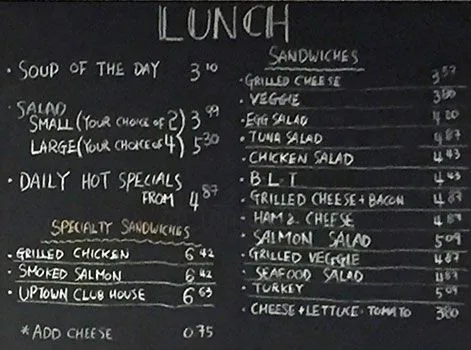 LUNCH
• SOUP OF THE DAY 3 10
• SALAD
SMALL (YOUR CHOICE OF 2) 3 99
LARGE (YOUR CHOICE OF 4) 5 30
• DAILY HOT SPECIALS
FROM 4 87
SPECIALTY SANDWICHES
• GRILLED CHICKEN 6 42
• SMOKED SALMON 6 42
• UPTOWN CLUB HOUSE 6 63
*ADD CHEESE 0.75
SANDWICHES
• GRILLED CHEESE 3 57
• VEGGIE 3 80
• EGG SALAD 4 20
• TUNA SALAD 4 87
• CHICKEN SALAD 4 43
• B.L.T 4 43
• GRILLED CHEESE + BACON 4 87
• HAM & CHEESE 4 87
• SALMON SALAD 5 09
• GRILLED VEGGIE 4 87
• SEAFOOD SALAD 4 87
• TURKEY 5 09
• CHEESE + LETTUCE • TOMATO 3 80